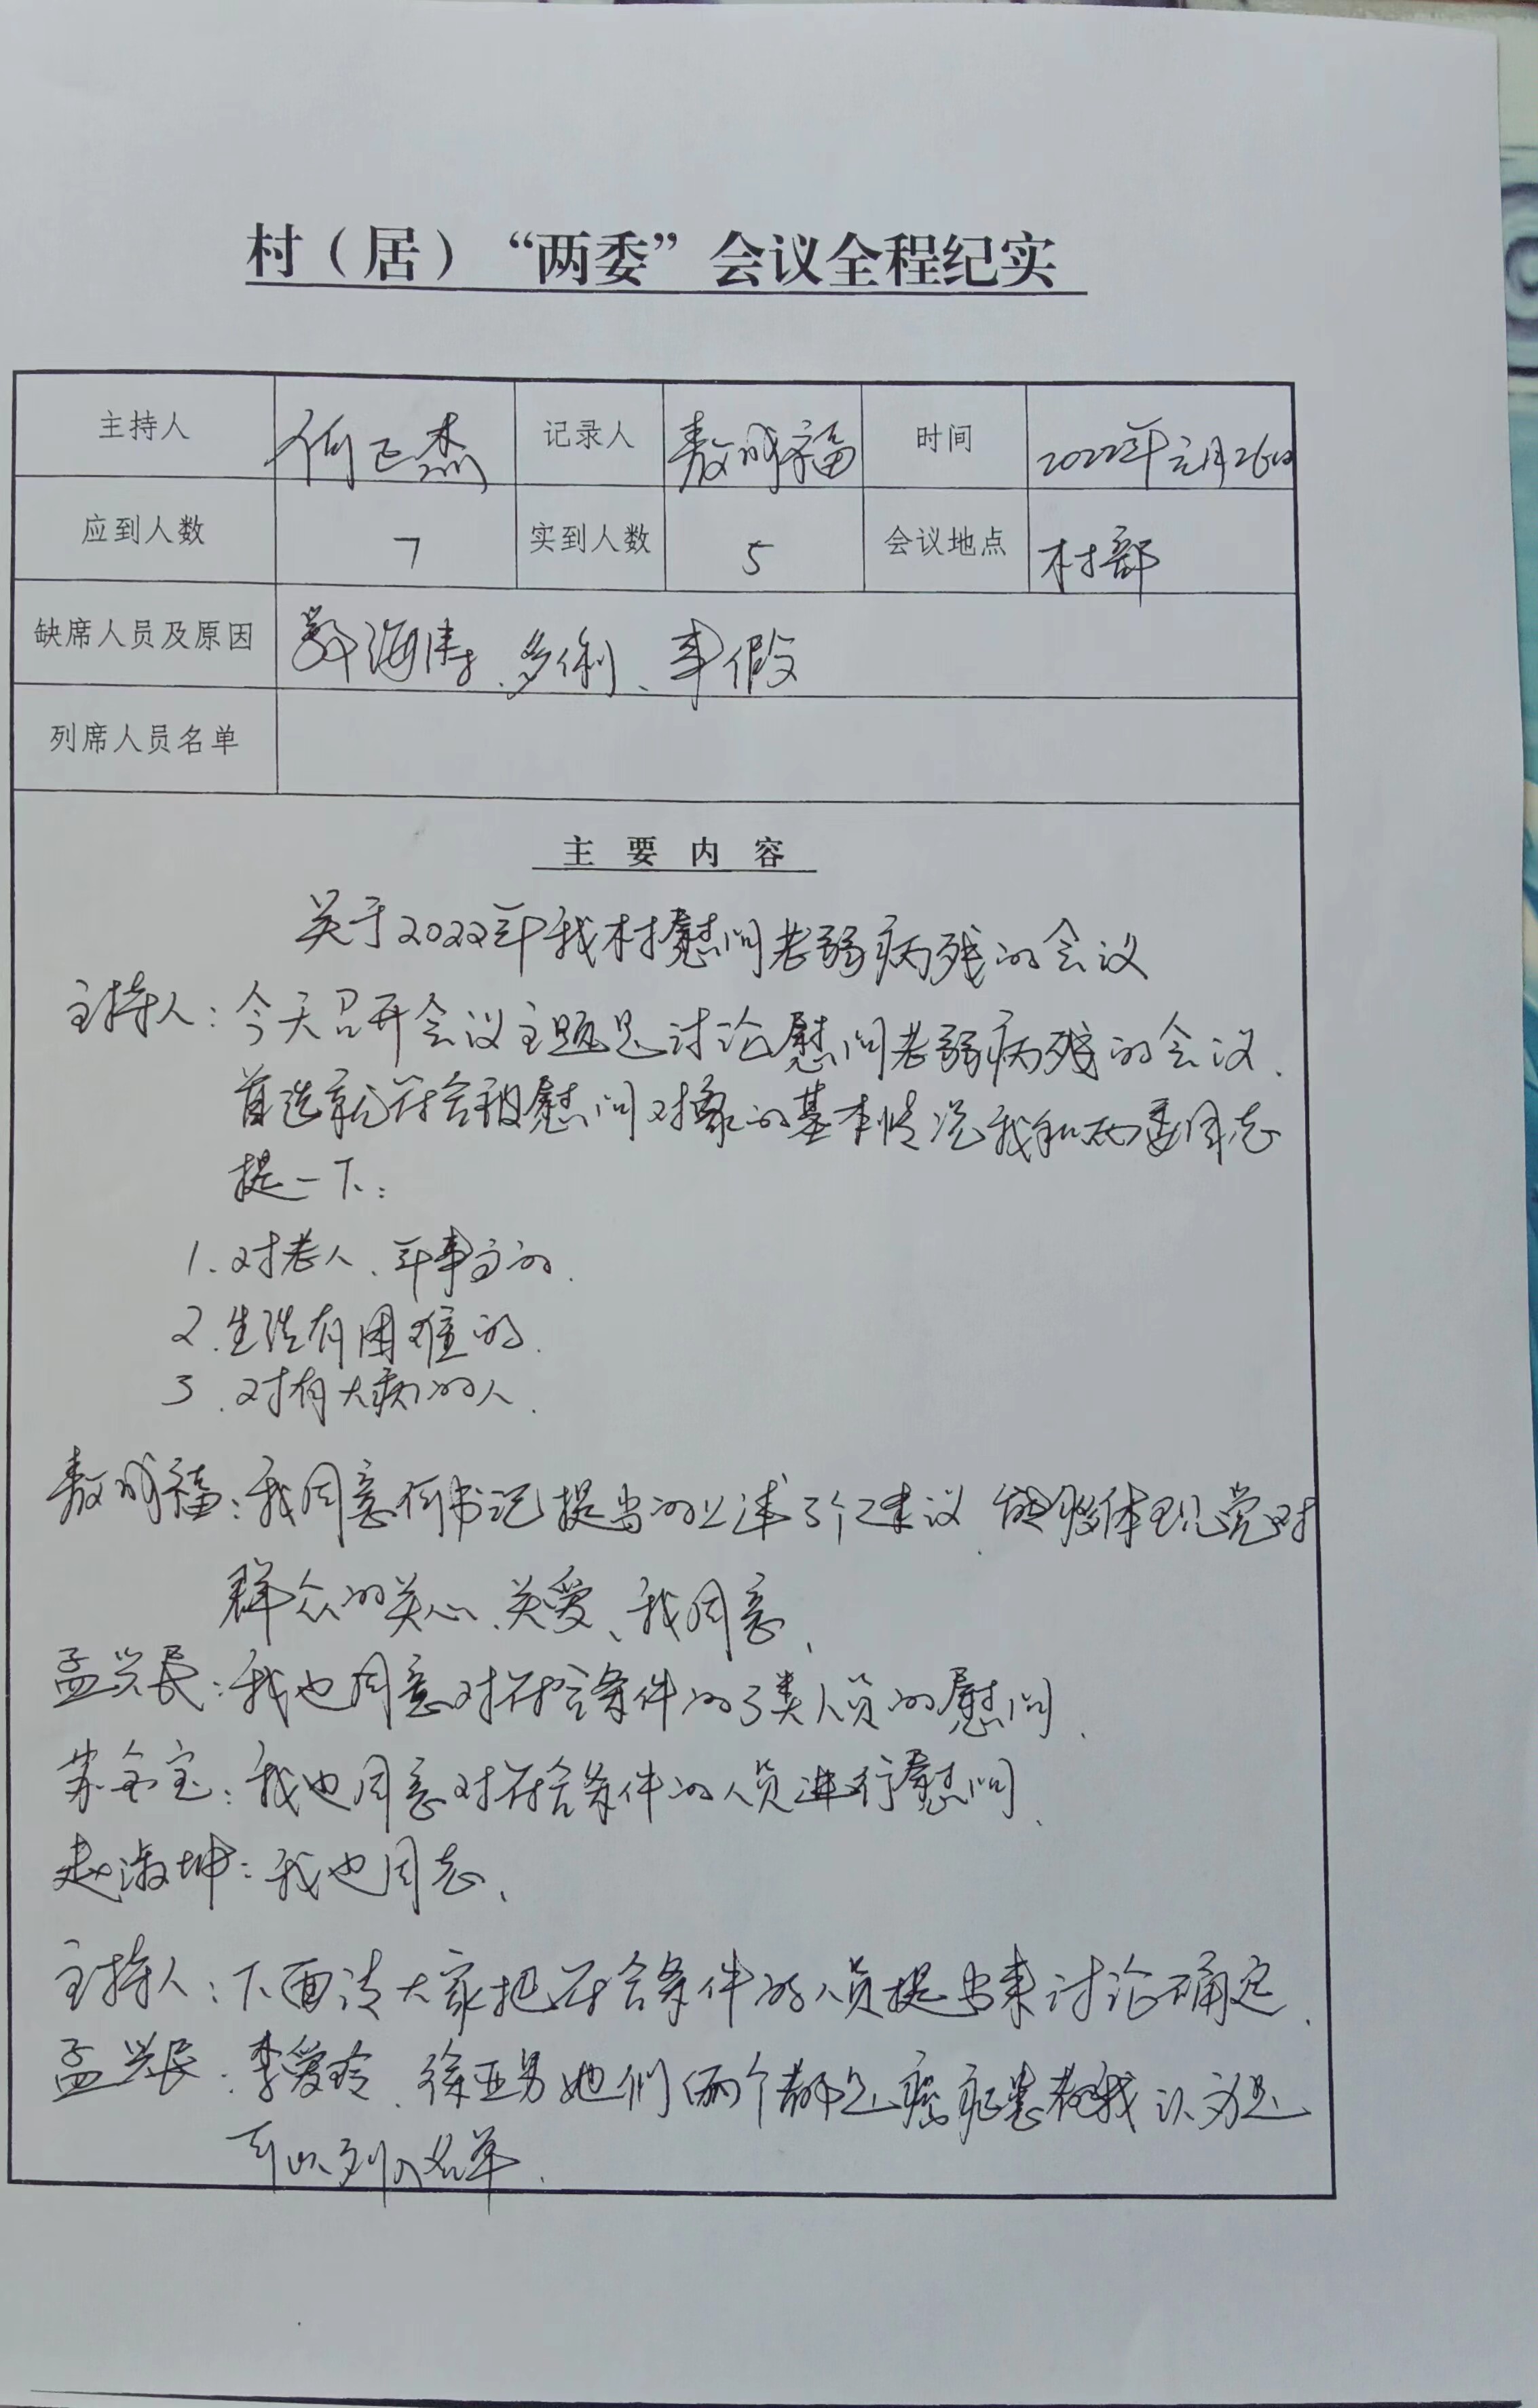 村（居）“两委”会议全程纪实
主持人 何正杰 记录人 敖成福 时间 2022年元月26日
应到人数 7 实到人数 5 会议地点 村部
缺席人员及原因 海涛、多俐、事假
列席人员名单
主要内容
关于2022年我村慰问老弱病残的会议
主持人：今天召开会议主题是讨论慰问老弱病残的会议.
首选就符合被慰问对象的基本情况我和两委同志
提一下：
1.对老人、年事高的.
2.生活有困难的.
3.对有大病的人.
敖成福：我同意何书记提出的上述3个建议.能够体现党对
群众的关心、关爱、我同意、
孟兴长：我也同意对符合条件的3类人员的慰问、
苏金宝：我也同意对符合条件的人员进行慰问、
赵淑坤：我也同志、
主持人：下面请大家把符合条件的人员提出来讨论确定、
孟兴长：李爱玲、徐亚男她们俩个都是癌症患者我认为是
可以列入名单.